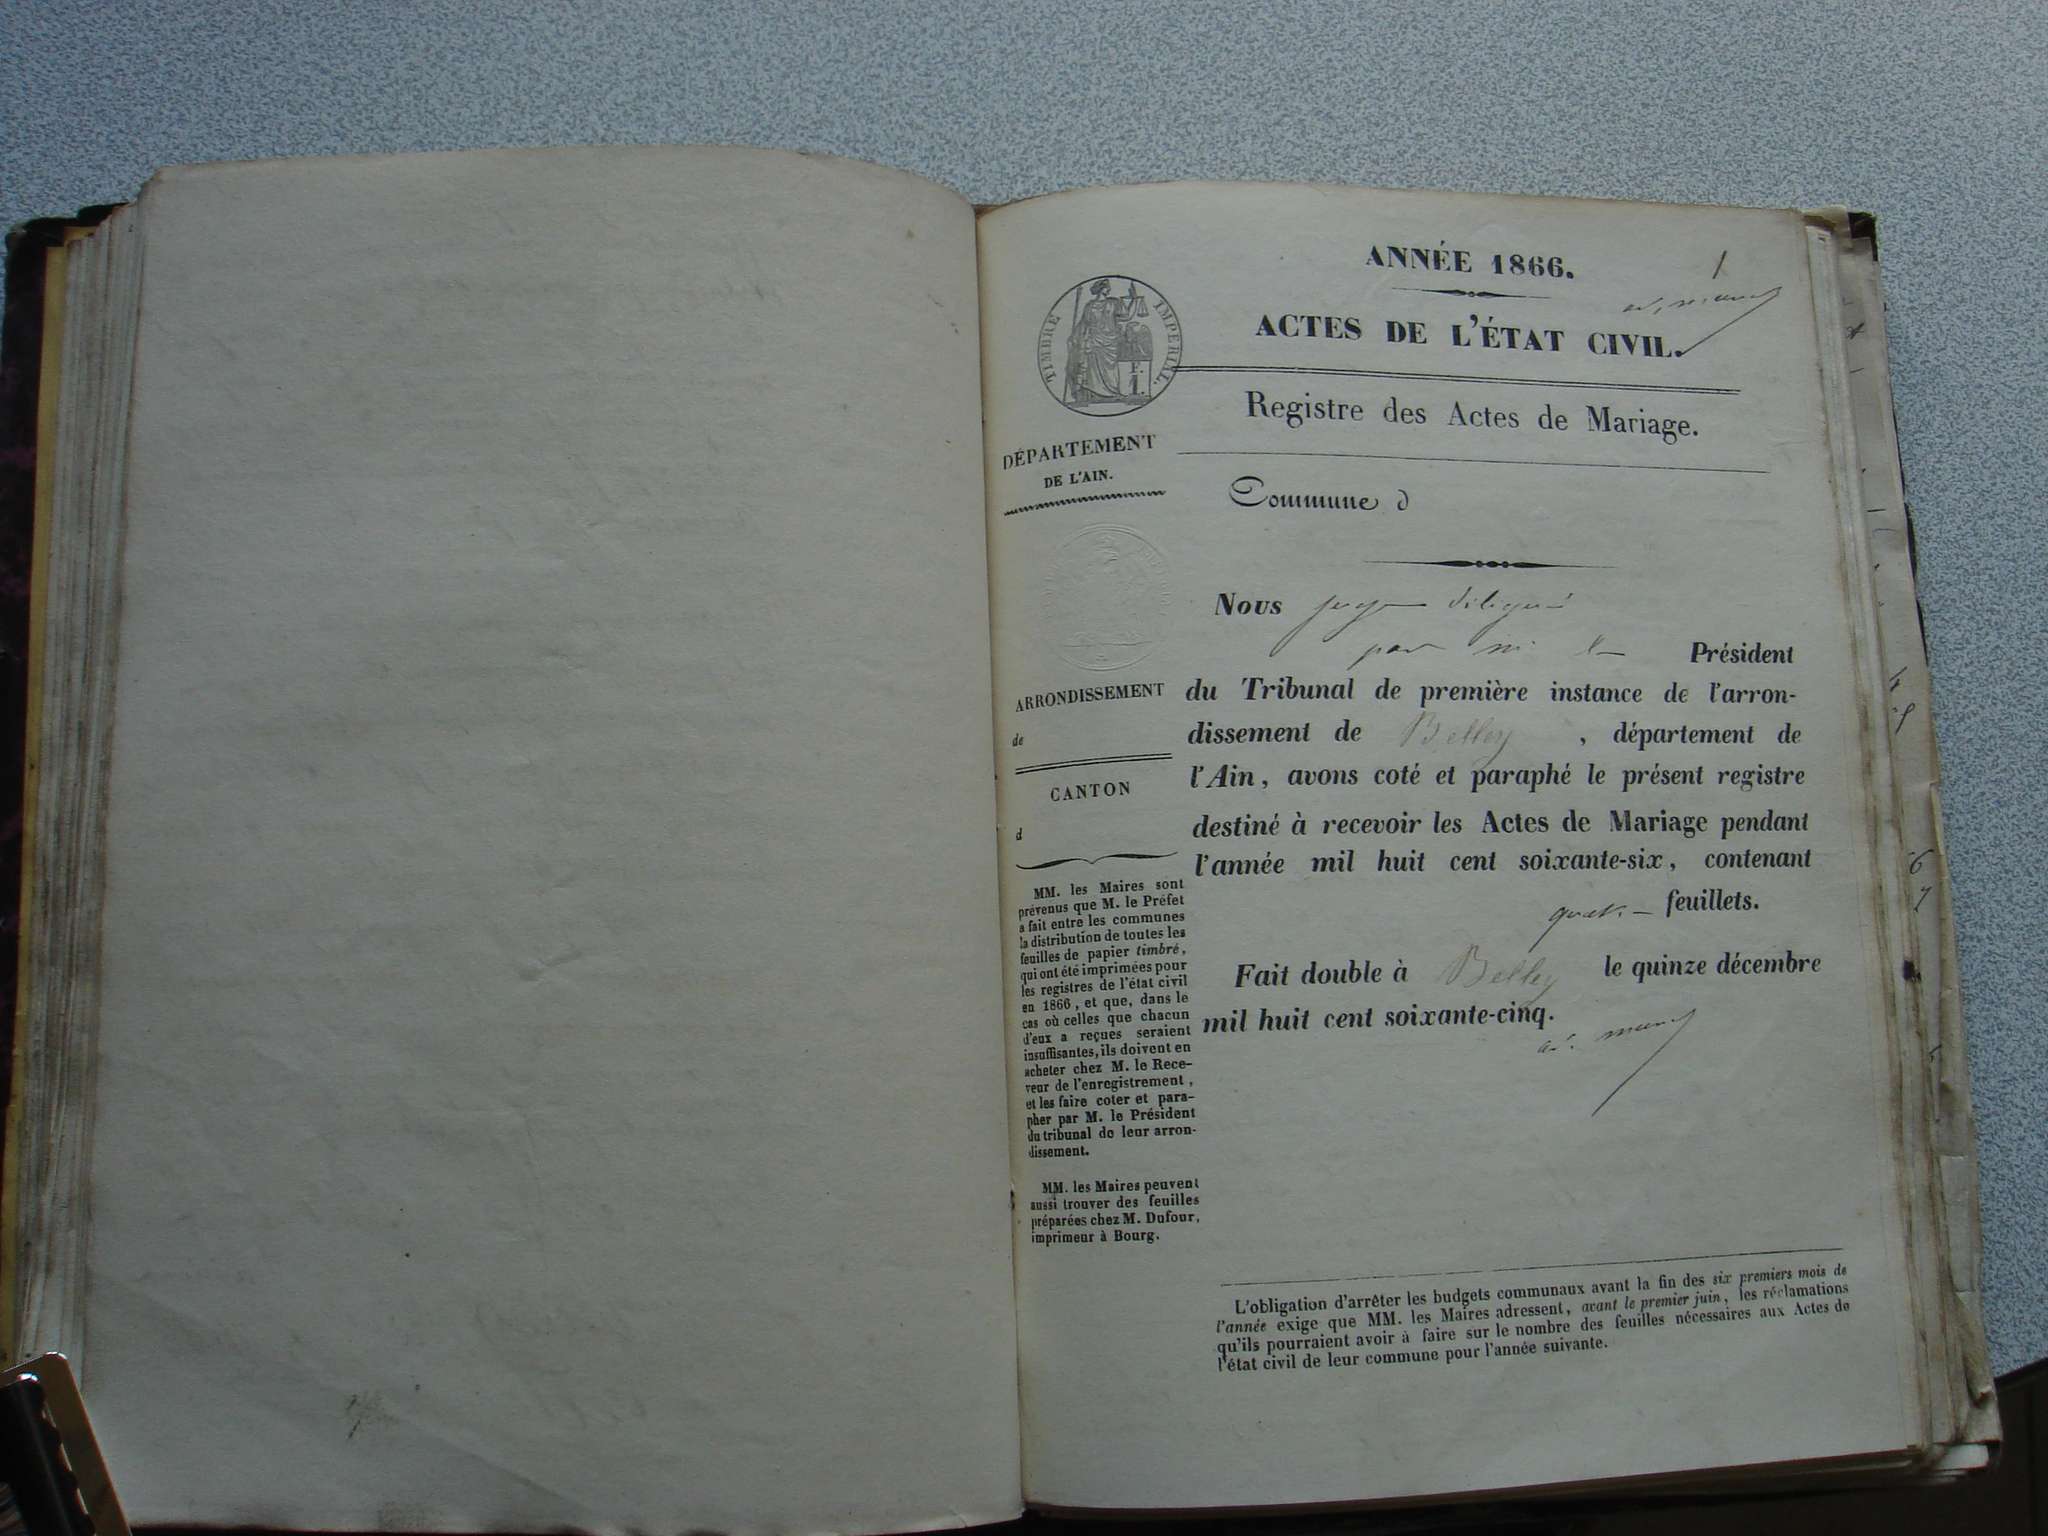 ANNÉE 1866.
1
ACTES DE L'ÉTAT CIVIL.
TIMBRE IMPÉRIAL.
F.
1.
Registre des Actes de Mariage.
DÉPARTEMENT
DE L'AIN.
Commune d
ARRONDISSEMENT
de
CANTON
d
MM. les Maires sont
prévenus que M. le Préfet
a fait entre les communes
la distribution de toutes les
feuilles de papier timbré,
qui ont été imprimées pour
les registres de l'état civil
en 1866, et que, dans le
cas où celles que chacun
d'eux a reçues seraient
insuffisantes, ils doivent en
acheter chez M. le Rece-
veur de l'enregistrement,
et les faire coter et para-
pher par M. le Président
du tribunal de leur arron-
dissement.
MM. les Maires peuvent
aussi trouver des feuilles
préparées chez M. Dufour,
imprimeur à Bourg.
Nous juge délégué
par m. le Président
du Tribunal de première instance de l'arron-
dissement de Belley, département de
l'Ain, avons coté et paraphé le présent registre
destiné à recevoir les Actes de Mariage pendant
l'année mil huit cent soixante-six, contenant
feuillets.
Fait double à Belley le quinze décembre
mil huit cent soixante-cinq.
L'obligation d'arrêter les budgets communaux avant la fin des six premiers mois de
l'année exige que MM. les Maires adressent, avant le premier juin, les réclamations
qu'ils pourraient avoir à faire sur le nombre des feuilles nécessaires aux Actes de
l'état civil de leur commune pour l'année suivante.